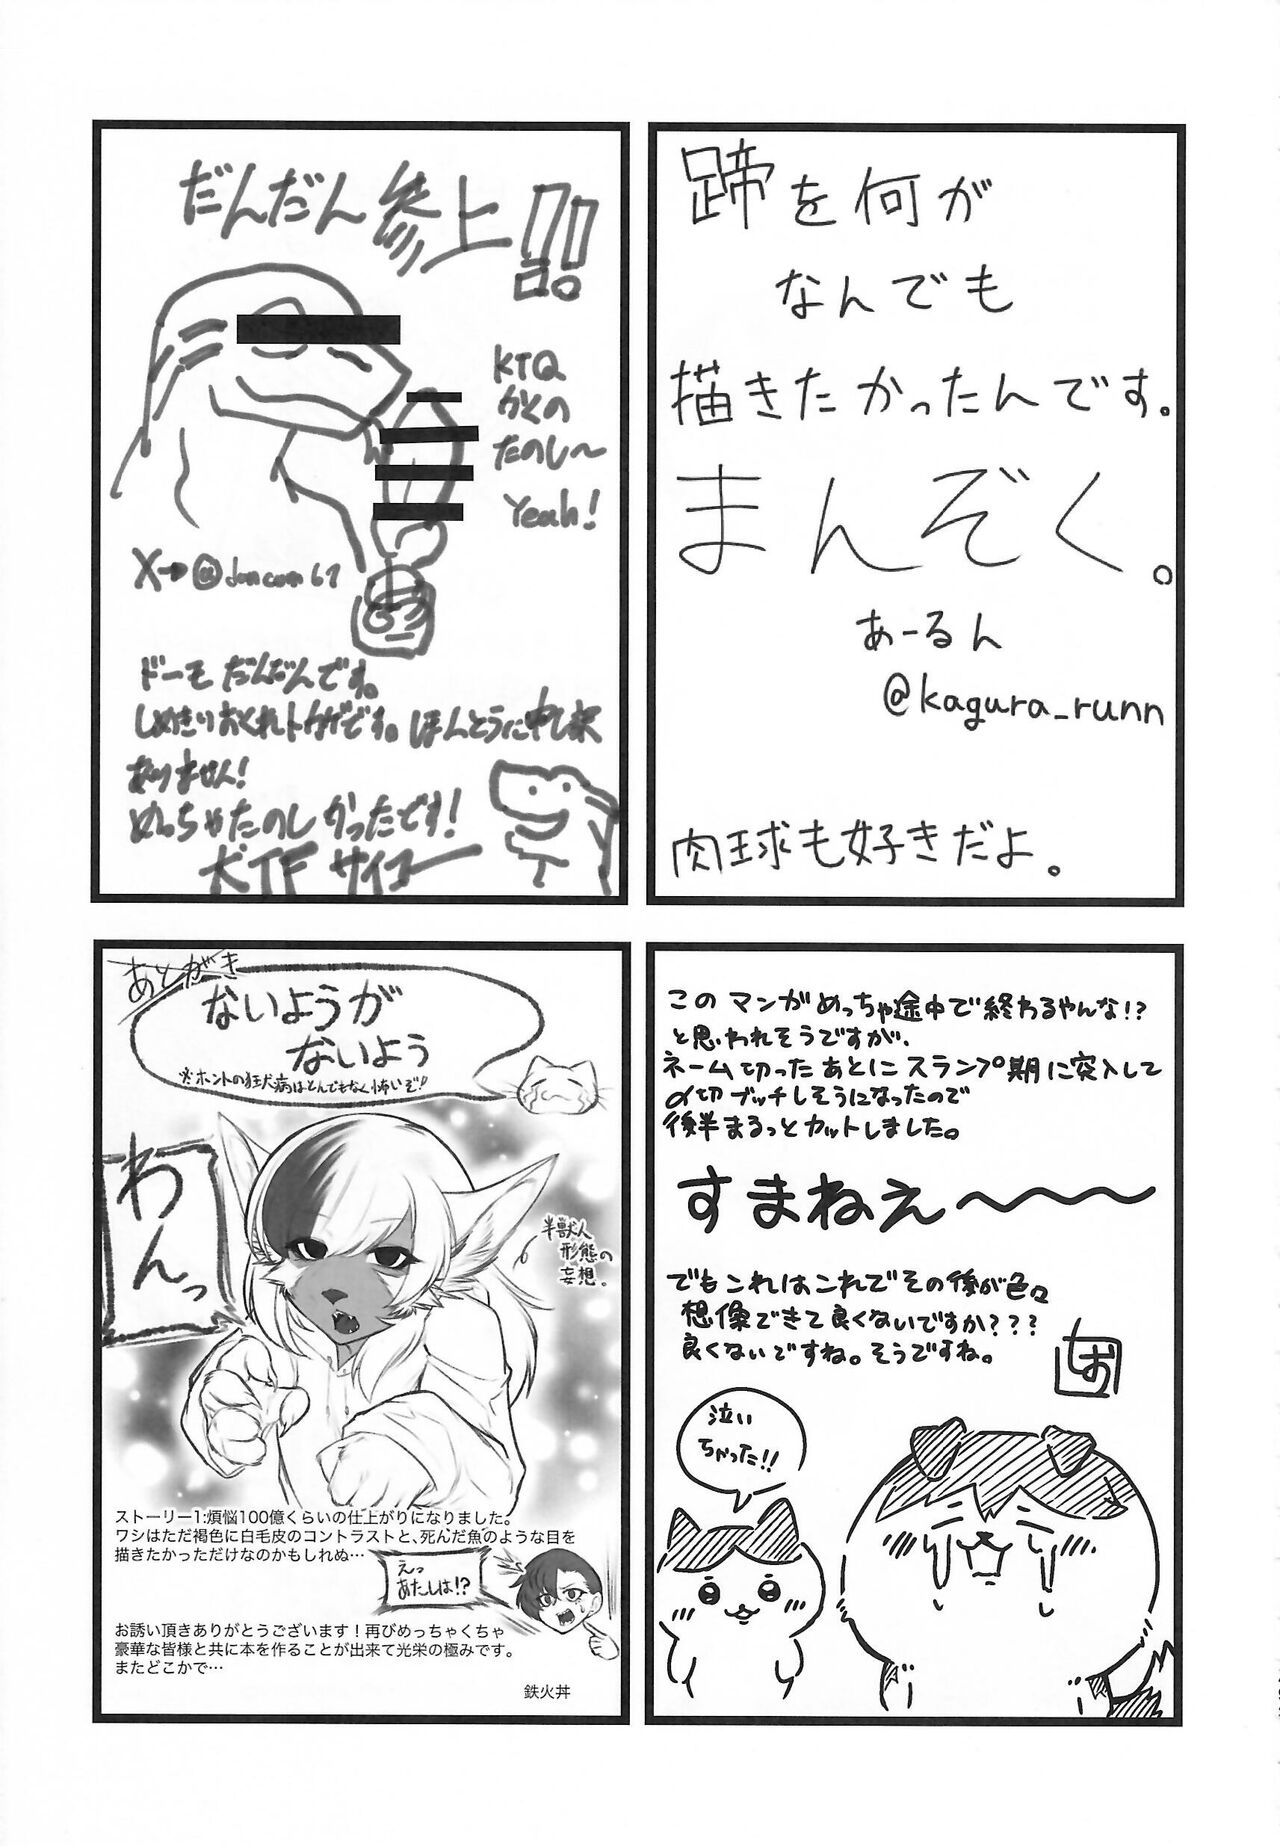 蹄を何が
なんでも
描きたかったんです。
まんぞく。
あーるん
@kagura_runn
肉球も好きだよ。
だんだん参上!!
KTQ
かくの
たのし～
Yeah!
ドーモ だんだんです。
しめきりおくれトカゲです。ほんとうに申し訳
ありません!
めっちゃたのしかったです!
犬TF サイコー
このマンガめっちゃ途中で終わるやんな!?
と思われそうですが、
ネーム切ったあとにスランプ期に突入して
〆切ブッチしそうになったので
後半まるっとカットしました。
すまねえ～～～
でもこれはこれでその後が色々
想像できて良くないですか???
良くないですね。そうですね。
泣い
ちゃった!!
あとがき
ないようが
ないよう
※ホントの狂犬病はとんでもなく怖いぞ!!
わんっ
半獣人
形態の
妄想。
ストーリー1:煩悩100億くらいの仕上がりになりました。
ワシはただ褐色に白毛皮のコントラストと、死んだ魚のような目を
描きたかっただけなのかもしれぬ…
えっ
あたしは!?
お誘い頂きありがとうございます！再びめっちゃくちゃ
豪華な皆様と共に本を作ることが出来て光栄の極みです。
またどこかで…
鉄火丼